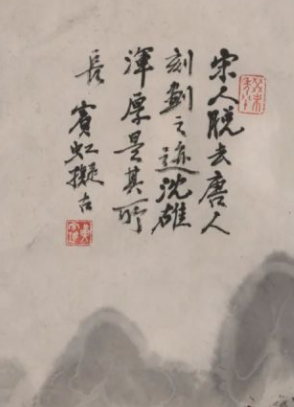 宋人脫去唐人
刻劃之迹沈雄
渾厚是其所
長 賓虹擬古